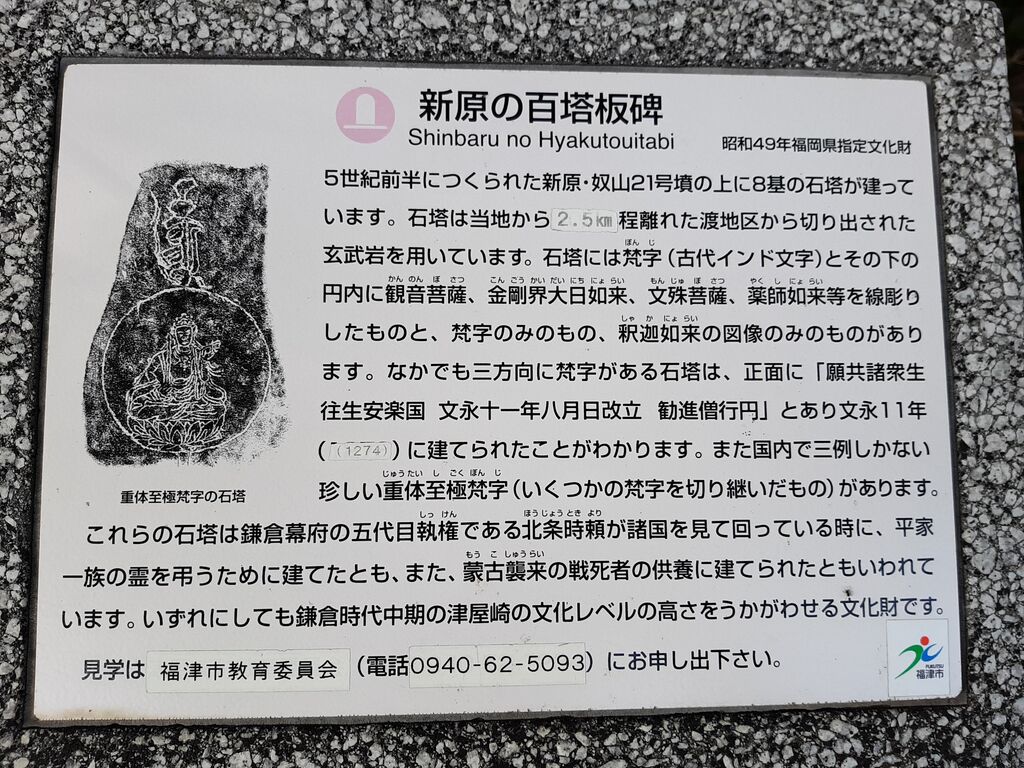 新原の百塔板碑
Shinbaru no Hyakutouitabi
昭和49年福岡県指定文化財
5世紀前半につくられた新原・奴山21号墳の上に8基の石塔が建って
います。石塔は当地から2.5km程離れた渡地区から切り出された
玄武岩を用いています。石塔には梵字(古代インド文字)とその下の
円内に観音菩薩、金剛界大日如来、文殊菩薩、薬師如来等を線彫り
したものと、梵字のみのもの、釈迦如来の図像のみのものがあり
ます。なかでも三方向に梵字がある石塔は、正面に「願共諸衆生
往生安楽国 文永十一年八月日改立 勧進僧行円」とあり文永11年
((1274))に建てられたことがわかります。また国内で三例しかない
珍しい重体至極梵字(いくつかの梵字を切り継いだもの)があります。
重体至極梵字の石塔
これらの石塔は鎌倉幕府の五代目執権である北条時頼が諸国を見て回っている時に、平家
一族の霊を弔うために建てたとも、また、蒙古襲来の戦死者の供養に建てられたともいわれて
います。いずれにしても鎌倉時代中期の津屋崎の文化レベルの高さをうかがわせる文化財です。
見学は 福津市教育委員会 (電話0940-62-5093)にお申し出下さい。
FUKUTSU
福津市